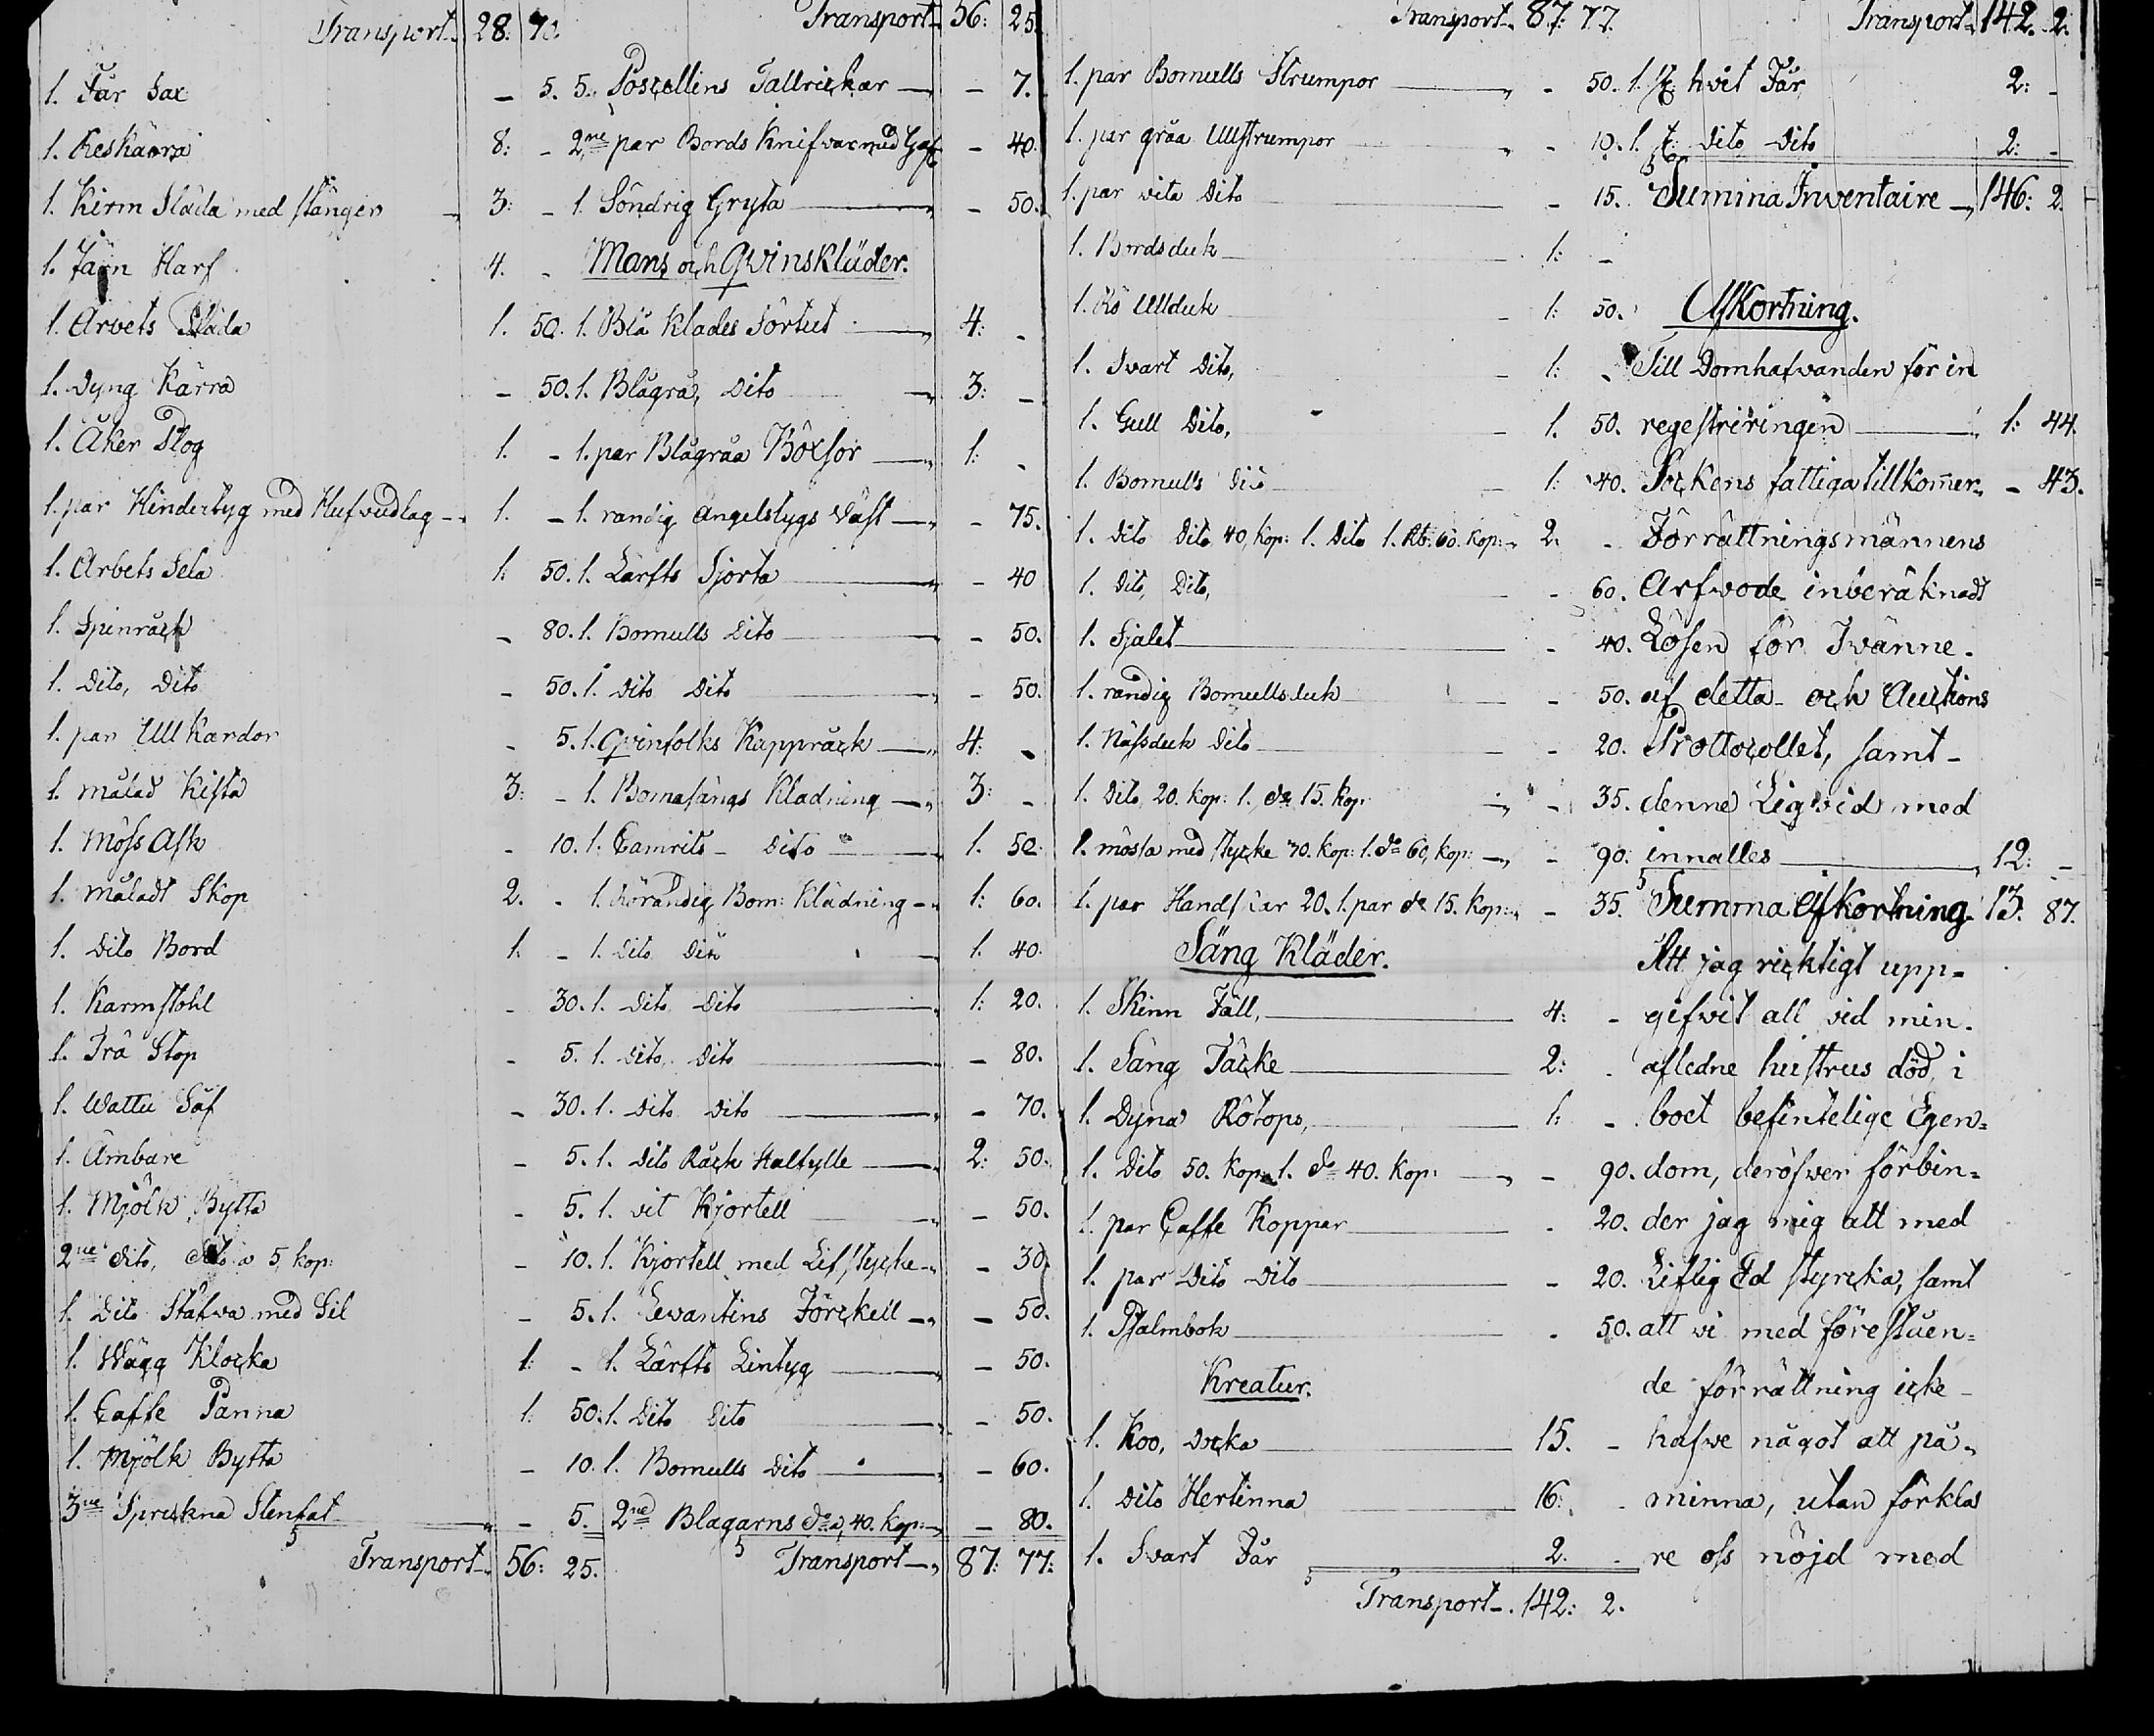 Transport 28: 70.
1. Får Sax - 5.
1. Reskärra 8: -
1. Kirm Släda med stänger 3: -
1. Järn Harf 4. -
1. Arbets Släda 1. 50.
1. Dyng Kärra - 50.
1. Åker Plog 1. -
1. par Hindertyg med Hufvudlag 1. -
1. Arbets Sela 1: 50.
1. Spinråck - 80.
1. Dito, Dito - 50.
1. par Ull Kardor - 5.
1. målad Kista 3: -
1. Möss Ask - 10.
1. måladt Skop 2. -
1. Dito Bord 1. -
1. Karmstohl - 30.
1. Trä Stop - 5.
1. Wattu Såf - 30.
1. Ämbare - 5.
1. Mjölk Bytta - 5.
2ne dito, dito a 5 kop: - 10.
1. Dito Stäfwa med Sil - 5.
1. Wägg Klocka 1: -
1. Caffe Panna 1: 50.
1. Mjölk Bytta - 10.
3ne Spruckna Stenfat - 5.
Transport 56: 25.
Transport 56: 25.
5. Poscellins Tallrickar - 7.
2ne par Bords Knifvar med Gaf: - 40.
1. Söndrig Gryta - 50.
Mans och Qvinskläder.
1. Blå Klädes Sörtut 4: -
1. Blågrå, Dito 3: -
1. par Blågråa Böxsor 1: -
1. randig Angelstygs Väst - 75.
1. Lärfts Sjorta - 40
1. Bomulls Dito - 50.
1. Dito Dito - 50.
1. Qvinfolks Kappråck 4: -
1. Bomasängs Klädning 3: -
1. Camrits Dito 1. 50.
1. rörandig Bom: Klädning 1: 60.
1. Dito Dito 1. 40.
1. Dito Dito 1: 20.
1. Dito, Dito - 80.
1. Dito Dito - 70.
1. Dito Råck Halfylle 2: 50.
1. vit Kjortell - 50.
1. Kjortell med Lifstycke - 30.
1. Levantins Förckell - 50.
1. Lärfts Lintyg - 50.
1. Dito Dito - 50.
1. Bomulls Dito - 60.
2ne Blagarns do a, 40. kop: - 80.
Transport 87: 77:
Transport 87: 77.
1. par Bomulls Strumpor - 50.
1. par gråa Ullstrumpor - 10.
1. par vita Dito - 15.
1. Bordsduk 1: -
1. Rö Ullduk 1: 50.
1. Svart Dito, 1: -
1. Gull Dito, 1. 50.
1. Bomulls Dito 1: 40.
1. Dito Dito 40, kop: 1. Dito 1. Rb: 60. kop: 2. -
1. Dito, Dito, - 60.
1. Sjalet - 40.
1. randig Bomullsduk - 50.
1. Näsduk Dito - 20.
1. Dito, 20. kop: 1. do 15. kop: - 35.
1. mössa med stycke 30. kop: 1. do 60, kop: - 90.
1. par Handskar 20. 1. par do 15. kop: - 35.
Säng Kläder.
1. Skinn Fäll, 4: -
1. Säng Täcke 2: -
1. Dyna Rötops, 1: -
1. Dito 50. kop: 1. do 40. kop: - 90.
1. par Caffe Koppar - 20.
1. par Dito Dito - 20.
1. Psalmbok - 50.
Kreatur.
1. Koo, Docka 15. -
1. Dito Hertinna 16: -
1. Svart Får 2. -
Transport 142: 2.
Transport 142. 2.
1. st: hvit Får 2: -
1 st: Dito Dito 2: -
Summa Inventaire 146: 2.
Afkortning.
Till Domhafvanden för in
regestreringen 1: 44.
Sockens fattiga tillkommer - 43.
Förrättningsmännens
Arfwode inberäknadt
Lösen för Tvänne
af detta och Auctions
Prottocollet, samt
denne Liqvid med
innalles 12: -
Summa Afkortning 13. 87.
Att jag ricktigt upp-
gifwit all vid min
afledne hustrus död, i
boet befintelige Egen-
dom, deröfwer förbin-
der jag mig att med
Liflig Ed styrcka, samt
att vi med föreståen-
de förrättning icke
hafwe något att på-
minna, utan förkla
re oss nöjd med